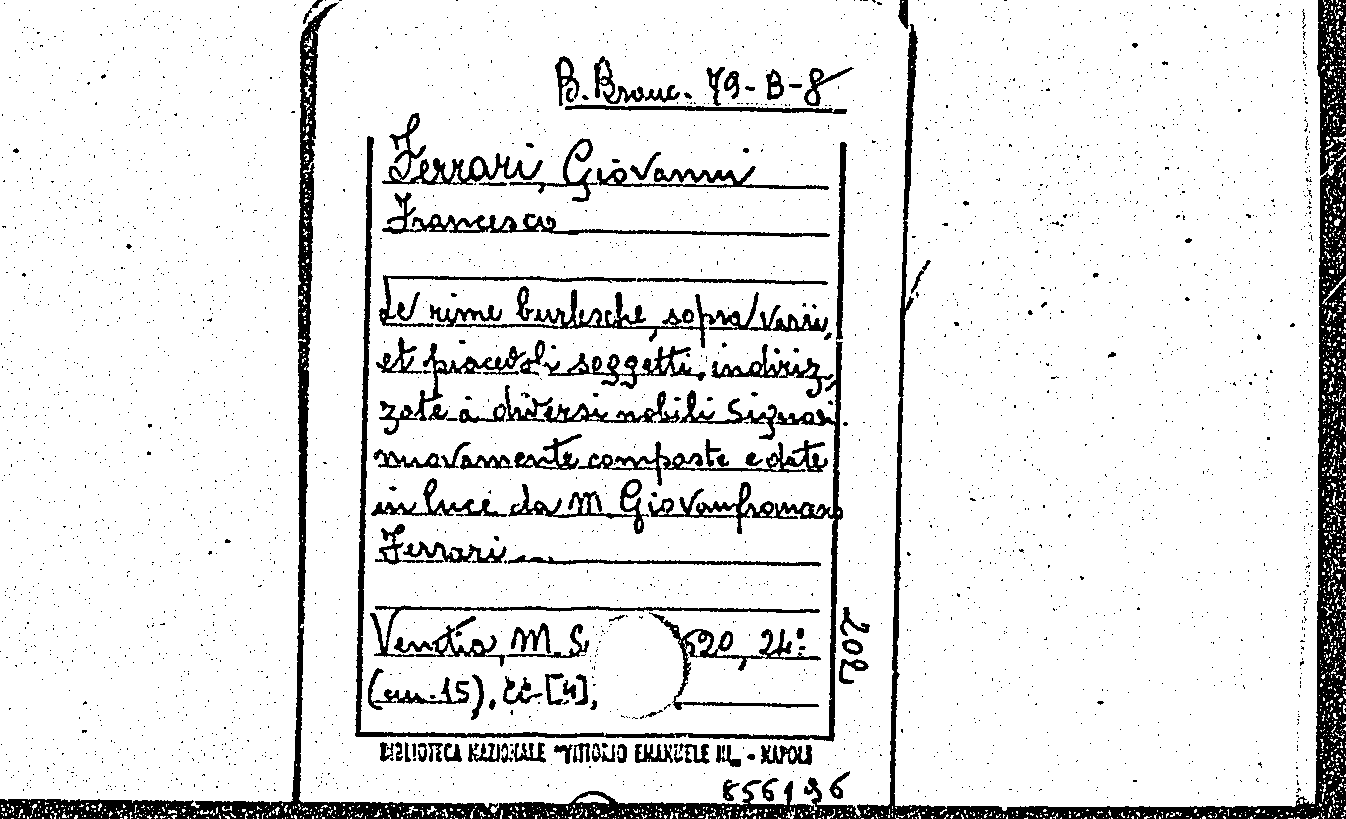 B. Branc. 79-B-8
Ferrari, Giovanni
Francesco
Le rime burlesche, sopra varii,
et piacevoli soggetti, indiriz,
zate à diversi nobili Signori.
nuovamente composte e date
in luce da M Giovanfrancesco
Ferrari...
Venetia, M. S 620, 24°.
(cm. 15), cc [4],
202
BIBLIOTECA NAZIONALE "VITTORIO EMANUELE III„ - NAPOLI
856196